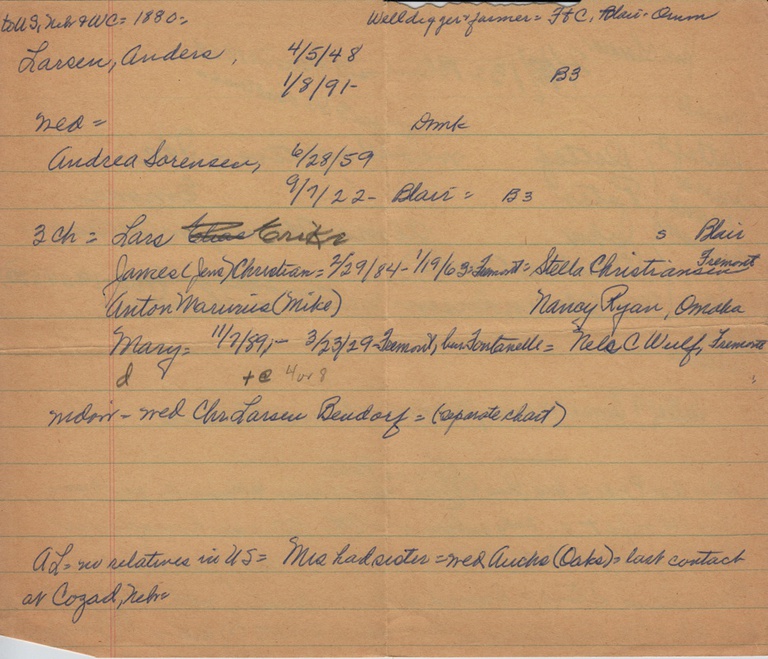 to US, Nebr & WC = 1880 = Welldigger & farmer = Ft C, Blair - Orum
Larsen, Anders, 4/5/48
1/8/91 - B3
wed = Dmk
Andrea Sorensen, 6/28/59
9/7/22 - Blair = B3
3 ch = Lars Erik s Blair
James (Jens) Christian = 2/29/84 - 1/19/63 = Fremont = Stella Christiansen Fremont
Anton Marinus (Mike) Nancy Ryan, Omaha
Mary = 11/7/89, - 3/23/29 - Fremont, bur Fontanelle = Nels C Wulf, Fremont
d + @ 4 or 8
widow - wed Chr Larsen Bendorf = (separate chart)
AL = no relatives in US = Mrs had sister = wed Auchs (Oaks) = last contact
at Cozad, Nebr